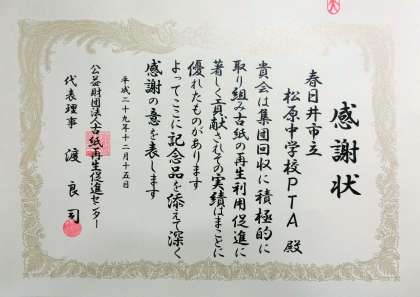 感謝状
春日井市立
松原中学校PTA 殿
貴会は集団回収に積極的に
取り組み古紙の再生利用促進に
著しく貢献されその実績はまことに
優れたものがあります
よってここに記念品を添えて深く
感謝の意を表します
平成二十九年十二月十五日
公益財団法人古紙再生促進センター
代表理事 渡 良司